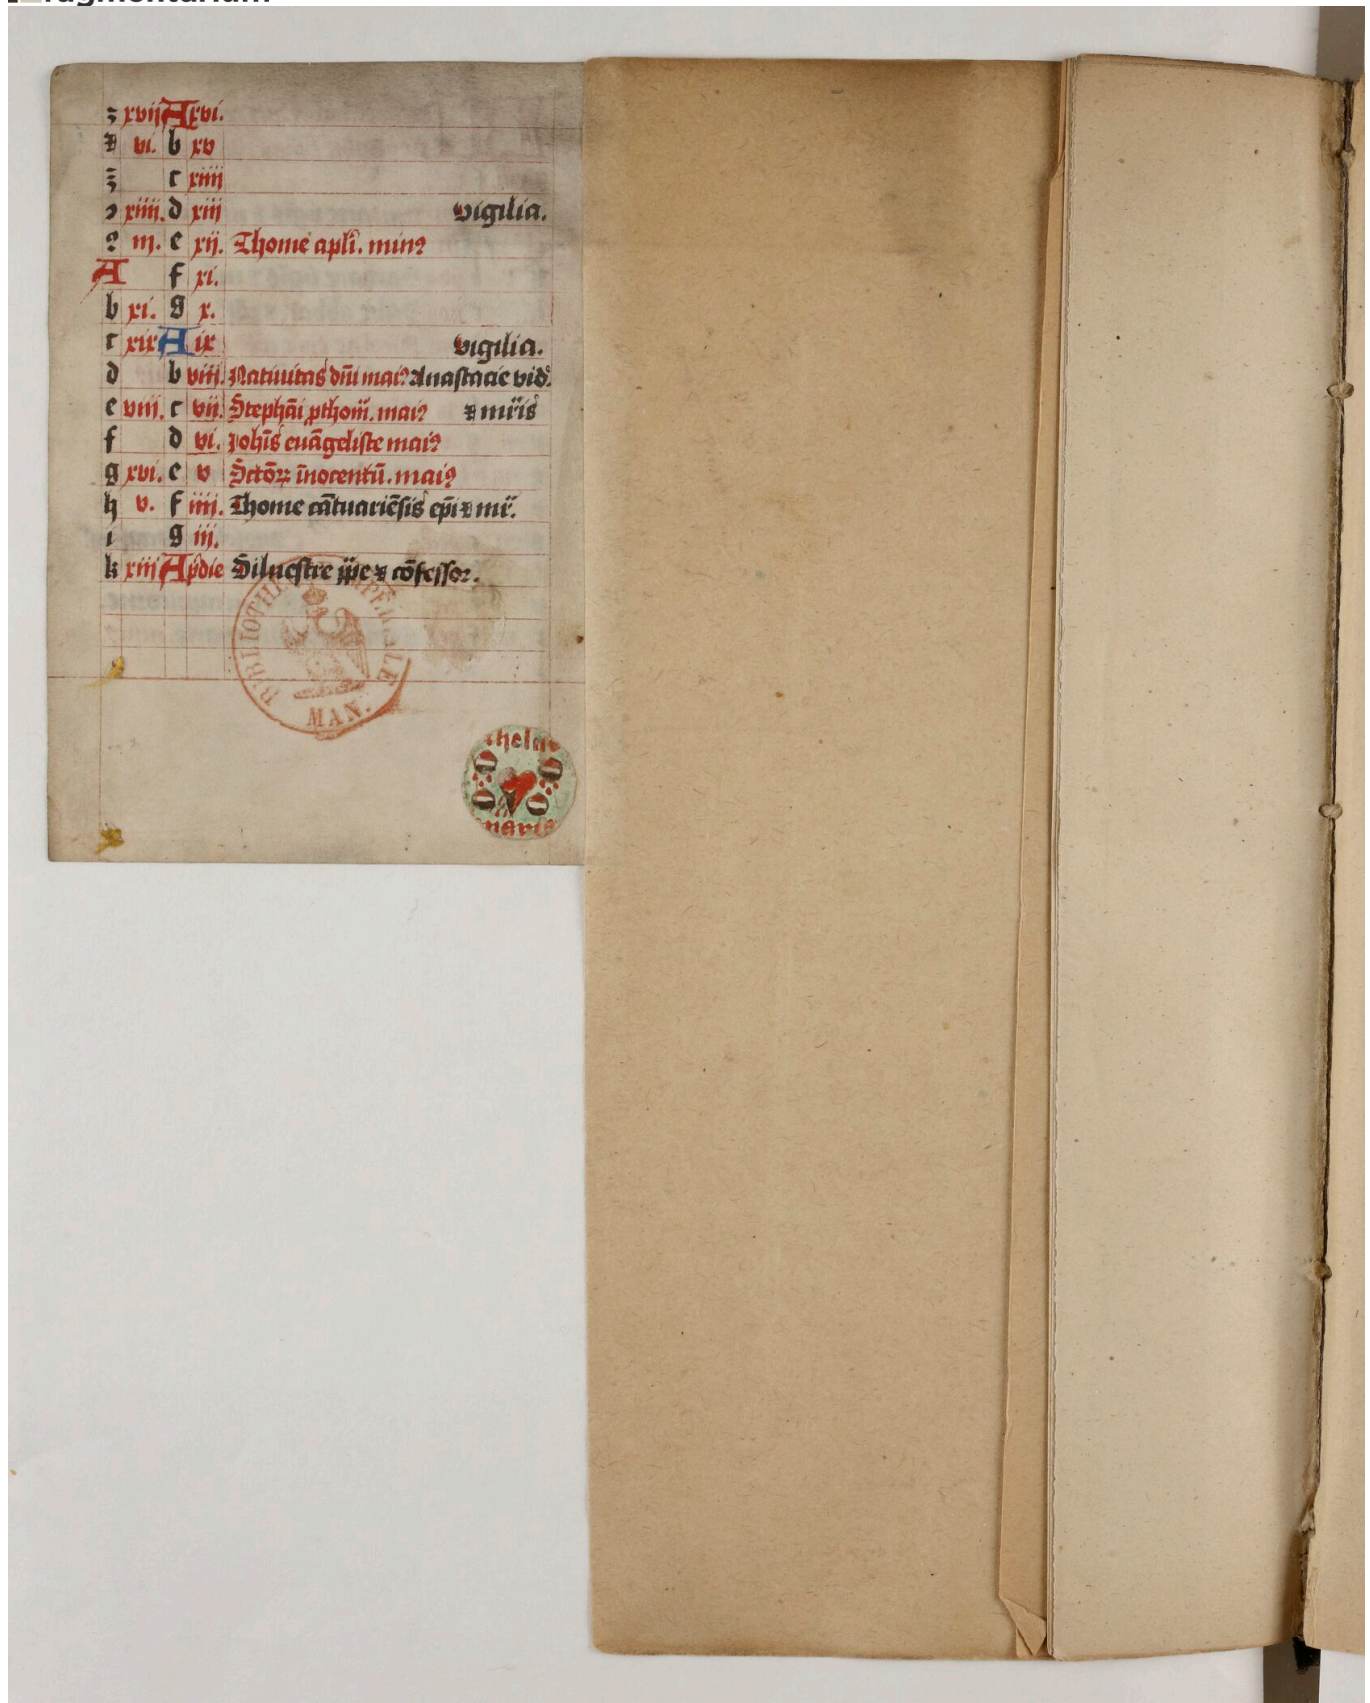 fragmentarium
xvij A xvi.
vi. b xv
c xiiii
xiiii. d xiii vigilia.
iii. e xij. Thome apli. min9
A f xi.
b xi. g x.
c xix A ix vigilia.
d b viij. Natiuitas dñi mai9 Anastacie vid.
e viij. c vij. Stephãi pthom̃. mai9 ⁊ mr̃is
f d vi. Johĩs euãgeliste mai9
g xvi. e v Sctõꝝ ĩnocentũ. mai9
h v. f iiij. Thome cãtuariẽsis ep̃i ⁊ mr̃.
i g iij.
k xiij A p̃die Siluestre p̃pe ⁊ cõfessor.
BIBLIOTHEQUE IMPÉRIALE
MAN.